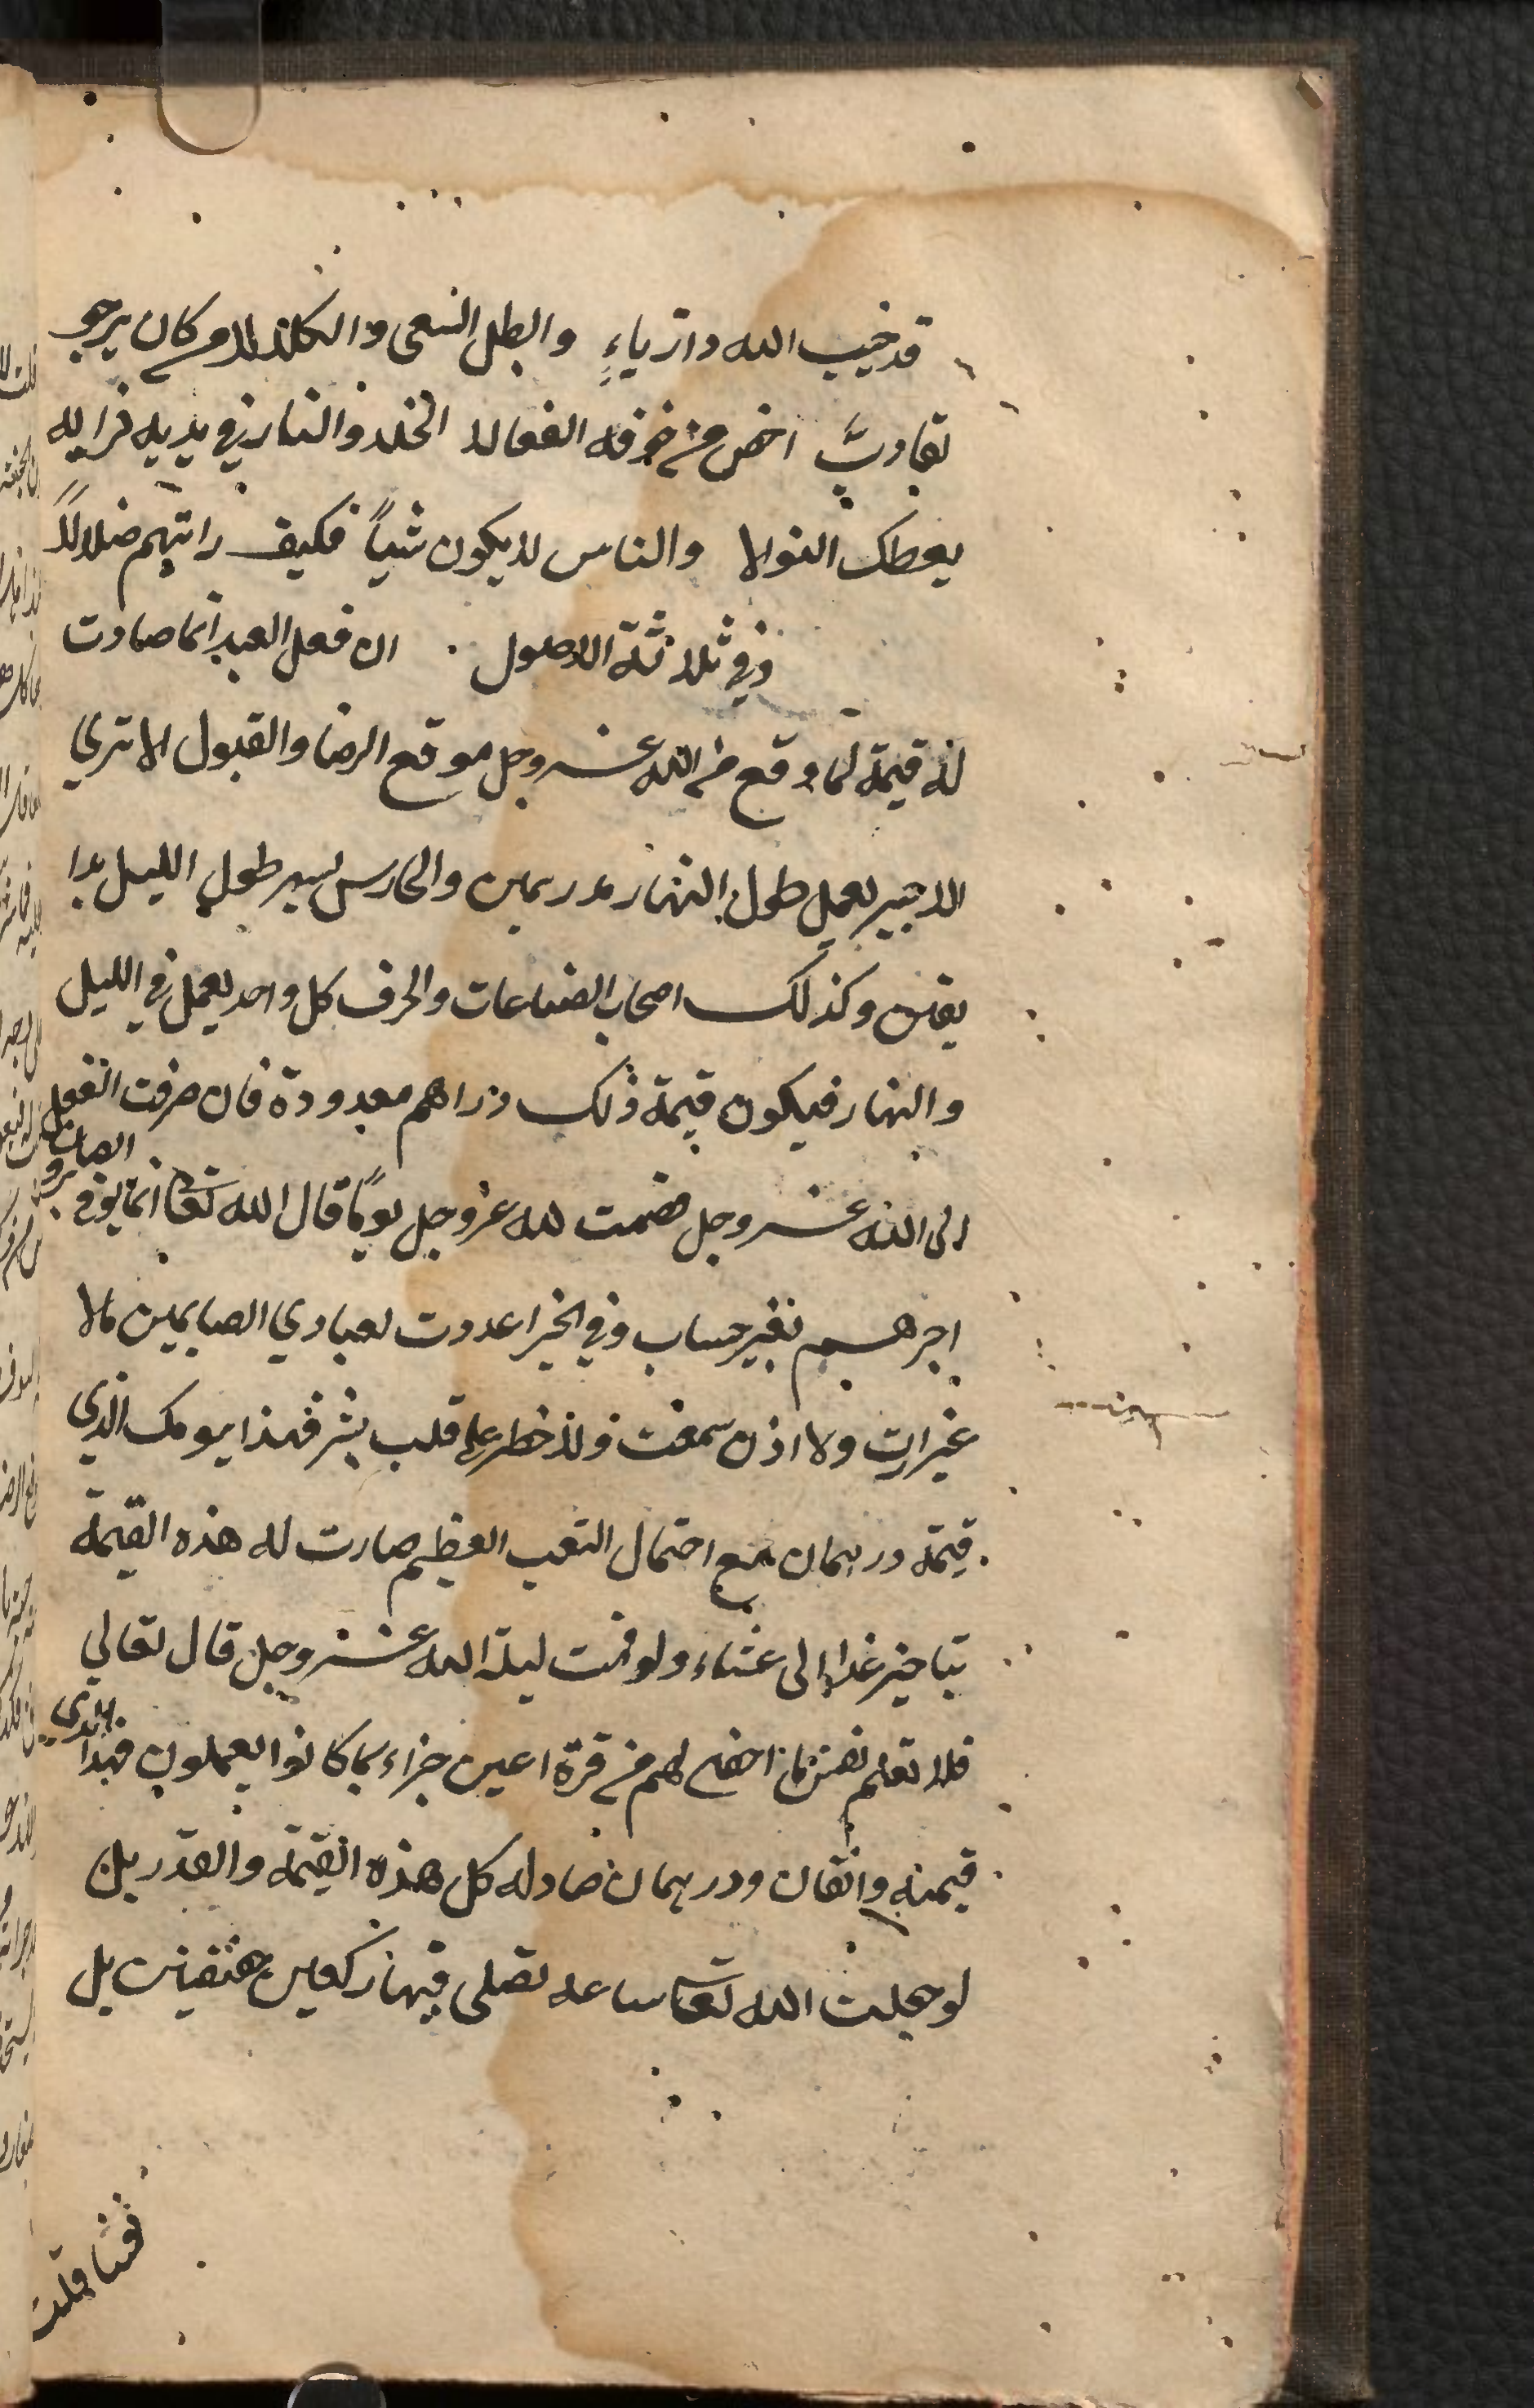 قد خيب الله دار رياءٍ وابطل السعى والكلالا من كان يرجو
لقا ربٍّ اخلص من خوفه الفعالا الخلد والنار في يديه فرايه
يعطك النوالا والناس لا يملكون شياً فكيف رايتهم ضلالاً
وفي ثلاثة الاصول ان فعل العبد انما صارت
له قيمة لما وقع من الله عز وجل موقع الرضا والقبول الا تري
الاجير يعمل طول النهار بدرهمين والحارس يسهر طول الليل بدا
نقين وكذلك اصحاب الصناعات والحرف كل واحد يعمل في الليل
والنهار فيكون قيمة ذلك دراهم معدودة فان صرفت الفعل
الى الله عز وجل فصمت لله عز وجل يوماً قال الله تعا انما يوفى الصابرون
اجرهم بغير حساب وفي الخبر اعددت لعبادي الصايمين مالا
عين رات ولا اذن سمعت ولا خطر على قلب بشر فهذا يومك الذي
قيمته درهمان مع احتمال التعب العظيم صارت له هذه القيمة
بتاخير غداء الى عشاء ولو قمت ليلة لله عز وجل قال تعالي
فلا تعلم نفس ما اخفى لهم من قرة اعين جزاء بما كانوا يعملون فهذا الذي
قيمته دانقان ودرهمان صار له كل هذه القيمة والقدر بل
لو جعلت الله تعا ساعة تصلى فيها ركعتين خفيفتين بل
نفسا قلت